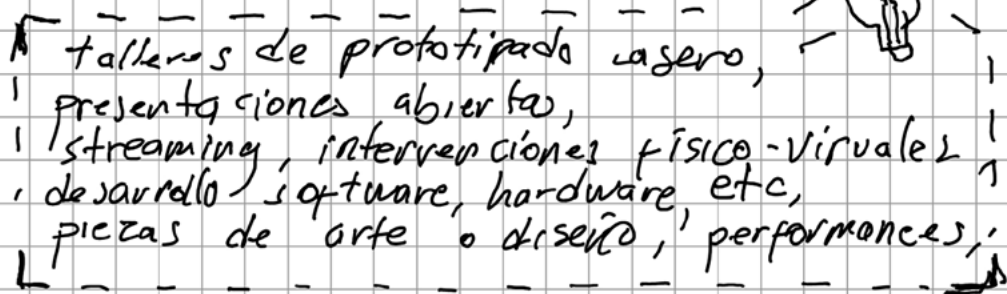 talleres de prototipado casero,
presentaciones abiertas,
streaming, intervenciones físico-viruales
desarrollo software, hardware, etc,
piezas de arte o diseño, performances,